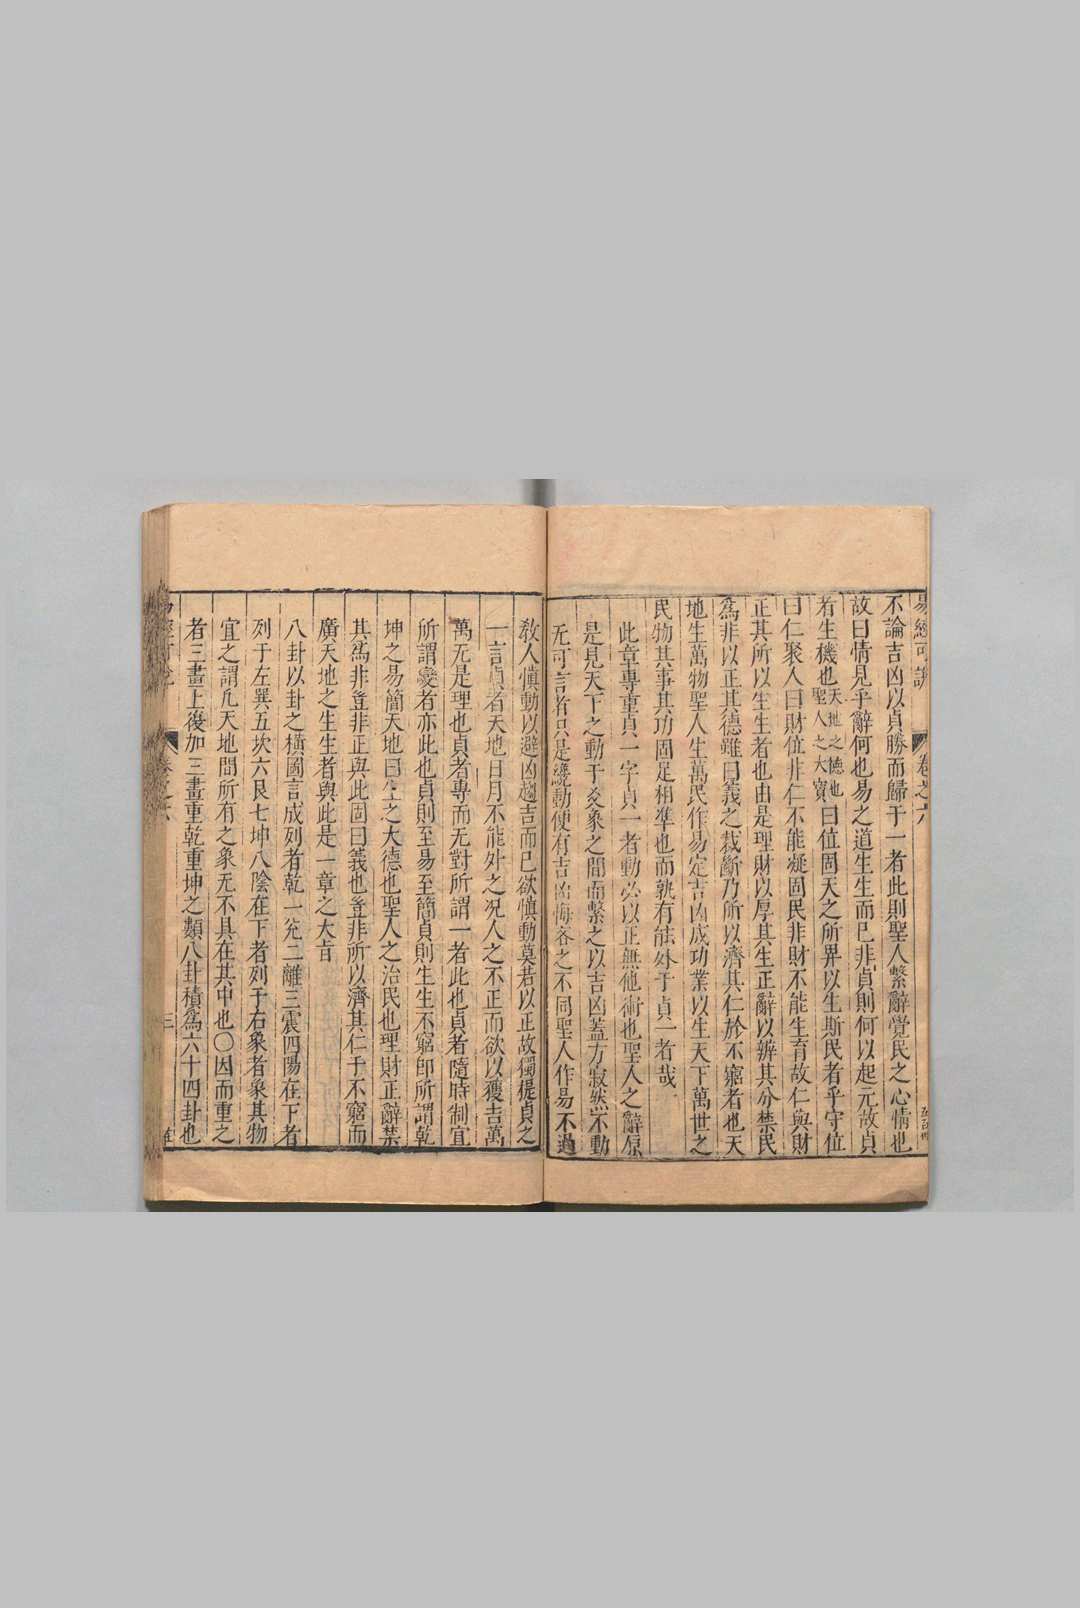 易經可說
卷之六
不論吉凶以貞勝而歸于一者此則聖人繫辭覺民之心情也
故曰情見乎辭何也易之道生生而已非貞則何以起元故貞
者生機也天地之德也聖人之大寶曰位固天之所畀以生斯民者乎守位
曰仁聚人曰財位非仁不能凝固民非財不能生育故仁與財
正其所以生生者也由是理財以厚其生正辭以辨其分禁民
為非以正其德雖曰義之裁斷乃所以濟其仁於不窮者也天
地生萬物聖人生萬民作易定吉凶成功業以生天下萬世之
民物其事其功固足相準也而孰有能外于貞一者哉
此章專重貞一字貞一者動必以正無他術也聖人之辭原
是見天下之動于爻象之間而繫之以吉凶蓋方寂然不動
无可言者只是纔動便有吉凶悔吝之不同聖人作易不過
敎人慎動以避凶趨吉而已欲慎動莫若以正故獨提貞之
一言貞者天地日月不能外之況人之不正而欲以獲吉萬
萬无是理也貞者專而无對所謂一者此也貞者隨時制宜
所謂變者亦此也貞則至易至簡貞則生生不窮即所謂乾
坤之易簡天地曰生之大德也聖人之治民也理財正辭禁
其爲非豈非正與此固曰義也豈非所以濟其仁于不窮而
廣天地之生生者與此是一章之大旨
八卦以卦之橫圖言成列者乾一兊二離三震四陽在下者
列于左巽五坎六艮七坤八陰在下者列于右象者象其物
宜之謂凡天地間所有之象无不具在其中也○因而重之
者三畫上復加三畫重乾重坤之類八卦積爲六十四卦也
三